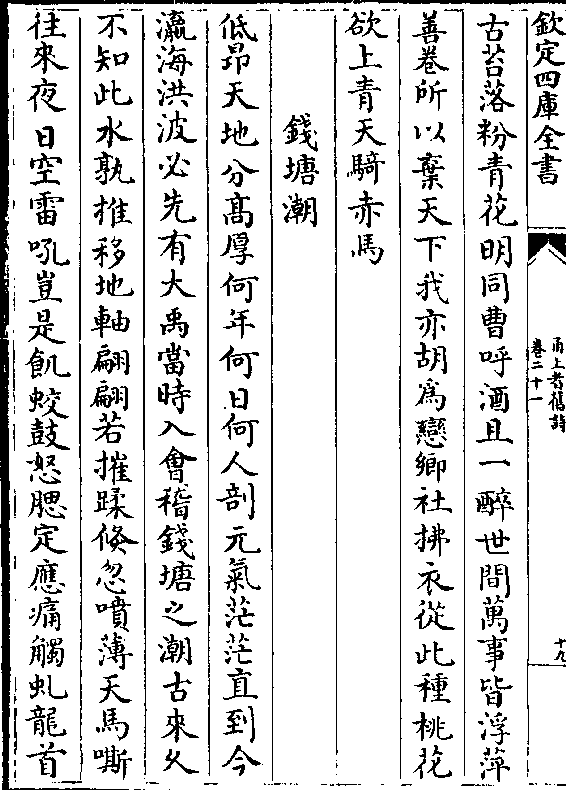 欽定四庫全書
甬上耆舊詩
卷二十一
十九
古苔落粉青花明同曹呼酒且一醉世間萬事皆浮萍
善卷所以棄天下我亦胡為戀鄉社拂衣從此種桃花
欲上青天騎赤馬
錢塘潮
低昂天地分髙厚何年何日何人剖元氣茫茫直到今
瀛海洪波必先有大禹當時入會稽錢塘之潮古來久
不知此水孰推移地軸翩翩若摧蹂倐忽噴薄天馬嘶
往來夜日空雷吼豈是飢蛟鼓怒腮定應痛觸虬龍首